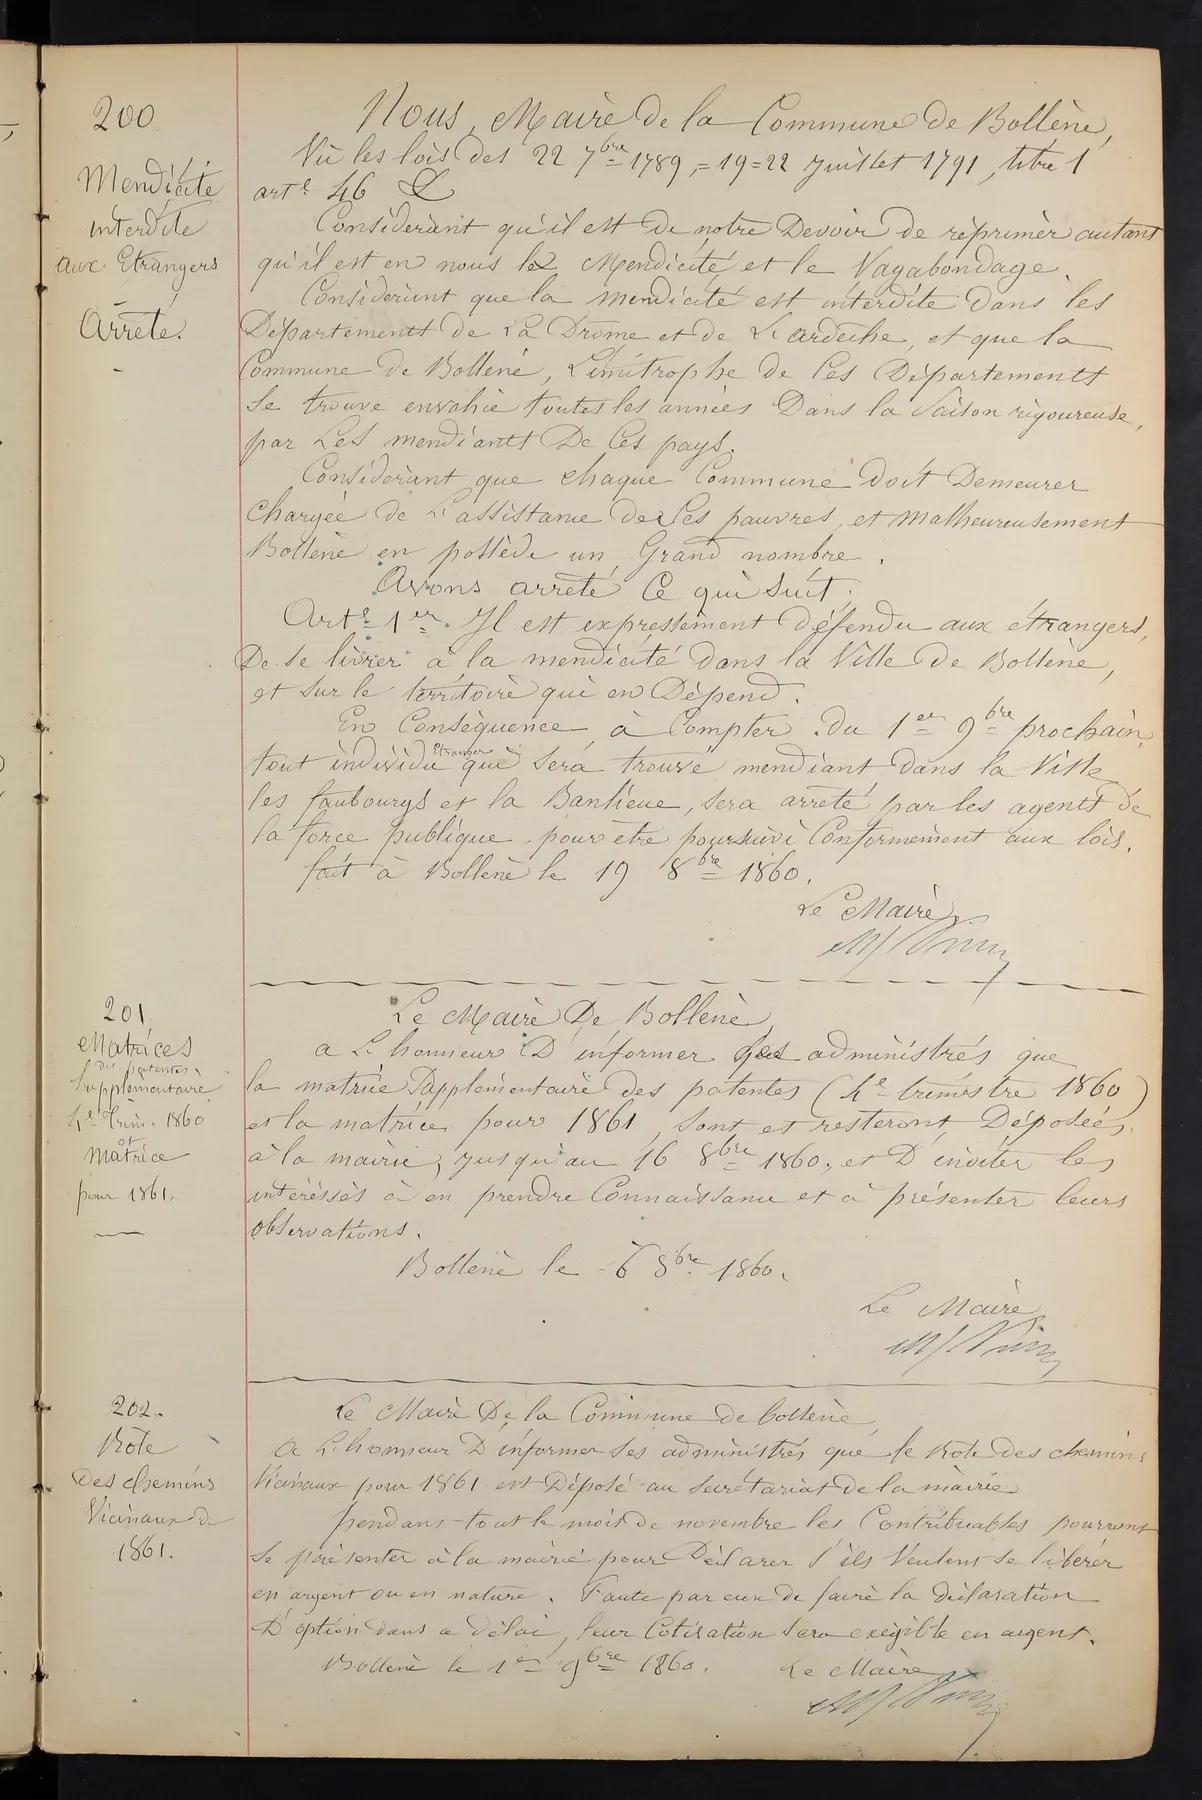 200
Mendicité
interdite
aux Etrangers
Arrêté.
Nous, Maire de la Commune de Bollène,
Vu les lois des 22 7bre 1789, = 19 = 22 Juillet 1791, titre 1
arte 46 &
Considérant qu'il est de notre Devoir de réprimer autant
qu'il est en nous la Mendicité et le Vagabondage.
Considérant que la mendicité est interdite dans les
Départements de La Drôme et de L'ardèche, et que la
Commune de Bollène, Limitrophe de Ces Départements
Se trouve envahie toutes les années Dans la Saison rigoureuse,
par Les mendiants De Ces pays.
Considérant que chaque Commune doit Demeurer
Chargée de L'assistance de Ses pauvres, et Malheureusement
Bollène en possède un Grand nombre.
Avons arrêté Ce qui Suit.
Arte 1er. Il est expressement défendu aux étrangers,
De Se livrer à la mendicité dans la Ville de Bollène,
et Sur le territoire qui en Dépend.
En Conséquence, à Compter du 1er 9bre prochain,
tout individu Etranger qui Sera trouvé mendiant dans la Ville
les faubourgs et la Banlieue, Sera arrêté par les agents de
la force publique pour être poursuivi Conformement aux lois.
fait à Bollène le 19 8bre 1860.
Le Maire
201.
Matrices
des patentes
Supplémentaire
4e Trim. 1860
et
Matrice
pour 1861.
Le Maire De Bollène
a L'honneur D'informer Ses administrés que
la matrice Supplémentaire des patentes (4e trimestre 1860)
et la matrice pour 1861, Sont et resteront Déposées,
à la mairie, Jusqu'au 16 8bre 1860, et D'inviter les
intéressés à en prendre Connaissance et à présenter leurs
observations.
Bollène le 6 8bre 1860.
Le Maire
202.
Rôle
Des Chemins
Vicinaux de
1861.
Le Maire De la Commune de bollène
a L'honneur D'informer Ses administrés que le Rôle des Chemins
Vicinaux pour 1861 est Déposé au Secrétariat de la mairie
pendant tout le mois de novembre les Contribuables pourront
Se présenter à la mairie pour Déclarer S'ils Veulent Se libérer
en argent ou en nature. Faute par eux de faire la Déclaration
D'option dans ce délai, leur Cotisation Sera exigible en argent.
Bollène le 1er 9bre 1860.
Le Maire